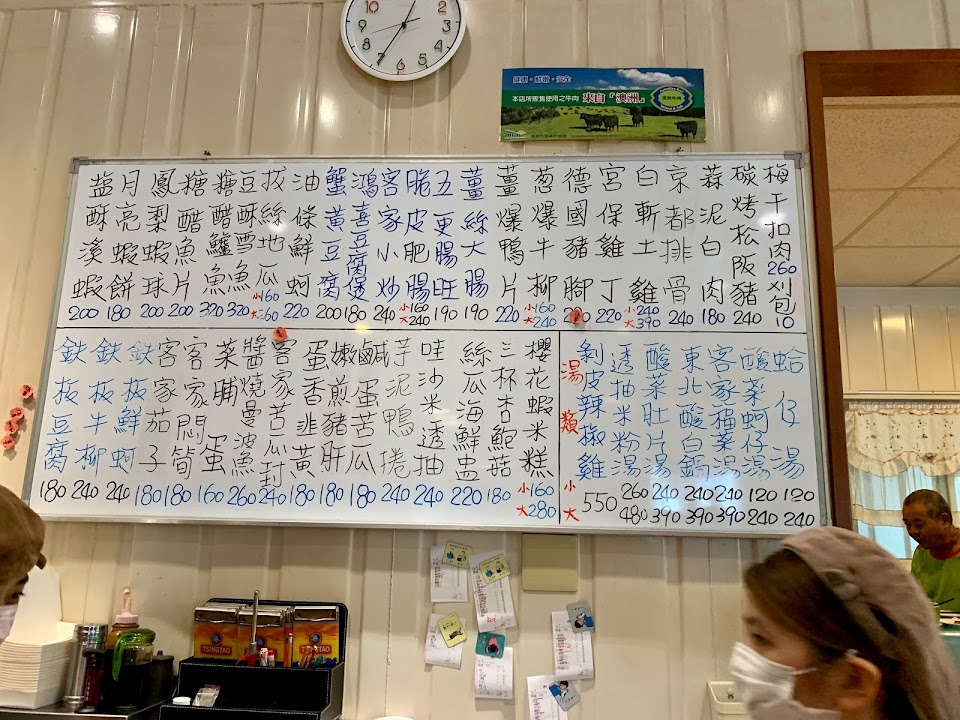 健康・鮮嫩・安全
本店所販售使用之牛肉 來自「澳洲」
梅干扣肉 260 刈包 10
碳烤松阪豬 240
蒜泥白肉 180
京都排骨 240
白斬土雞 小240 大390
宮保雞丁 220
德國豬腳
葱爆牛柳 小160 大240
薑爆鴨片 220
薑絲大腸 190
五更腸旺 190
脆皮肥腸 小160 大240
客家小炒 240
鴻喜豆腐煲 180
蟹黃豆腐 200
油條鮮蚵 220
拔絲地瓜 小160 大260
豆酥鱈魚 320
糖醋鱸魚 320
糖醋魚片 200
鳳梨蝦球 200
月亮蝦餅 180
塩酥溪蝦 200
湯類 小 大
蛤仔湯 120 240
酸菜蚵仔湯 120 240
客家福菜湯 240 390
東北酸白鍋 240 390
酸菜肚片湯 240 390
透抽米粉湯 260 480
剝皮辣椒雞 550
櫻花蝦米糕 小160 大280
三杯杏鮑菇 180
絲瓜海鮮盅 220
哇沙米透抽 240
芋泥鴨捲 240
鹹蛋苦瓜 180
嫩煎豬肝 180
蛋香韮黃 180
客家苦瓜封 240
醬燒曼波魚 260
菜脯蛋 160
客家悶筍 180
客家茄子 180
鉄板鮮蚵 240
鉄板牛柳 240
鉄板豆腐 180
TSINGTAO
TSINGTAO